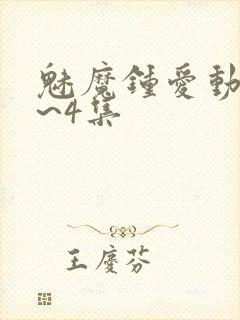 魅魔鍾愛動
~4集
王慶芬